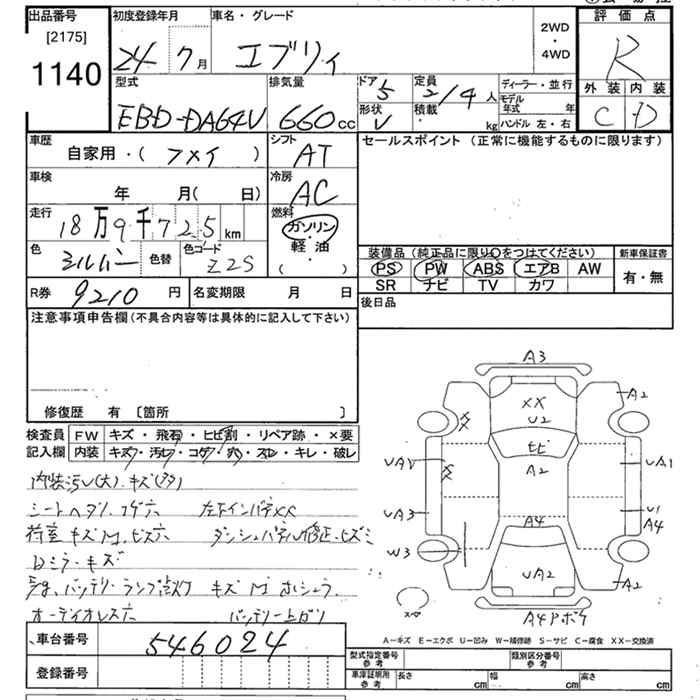 出品番号
[2175]
1140
初度登録年月
24年7月
車名・グレード
エブリィ
2WD
・
4WD
評価点
R
外装 内装
C D
型式
EBD-DA64V
排気量
660cc
ドア
5
形状
V
定員
2/4人
積載
kg
ディーラー・並行
モデル年式 年
ハンドル 左・右
車歴
自家用・( )
シフト
AT
セールスポイント (正常に機能するものに限ります)
車検
年 月( 日)
冷房
AC
走行
18万9千725km
燃料
ガソリン
軽・油
( )
色
色替
色コード
Z2S
装備品 (純正品に限り○をつけてください)
PS PW ABS エアB AW
SR ナビ TV カワ
新車保証書
有・無
R券 9210円
名変期限 月 日
後日品
注意事項申告欄 (不具合内容等は具体的に記入して下さい)
修復歴 有 [箇所 ]
検査員記入欄
FW キズ・飛石・ヒビ割・リペア跡・×要
内装 キズ・汚レ・コゲ・穴・スレ・キレ・破レ
内装汚レ(大)・キズ(多)
シートヘタリ、コゲ穴 左下インパネXX
荷室キズM、ビス穴 ダッシュパネル修正・ヒズミ
Dミラーキズ
オーディオレス穴 バッテリー上ガリ
A3
A2
XX
U2
XX
ヒビ
A2
UA2
XX
UA1
UA3
U1
A4
A4
W3
UA2
A2
A4Pボケ
A-キズ E-エクボ U-凹み W-補修跡 S-サビ C-腐食 XX-交換済
車台番号
546024
登録番号
型式指定番号 参考
類別区分番号 参考
車庫証明用 参考
長さ cm
幅 cm
高さ cm